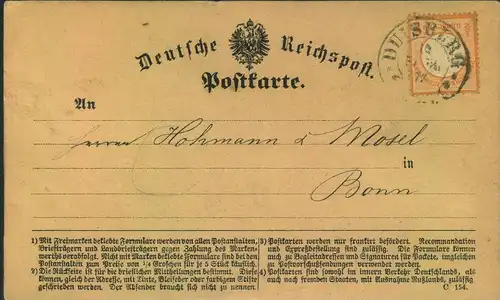 Deutsche Reichspost.
Postkarte.
DUISBURG
An
Herren Hohmann & Mosel
in
Bonn
1) Mit Freimarken beklebte Formulare werden von allen Postanstalten,
Briefträgern und Landbriefträgern gegen Zahlung des Marken-
werths verabfolgt. Nicht mit Marken beklebte Formulare sind bei den
Postanstalten zum Preise von ¼ Groschen für je 5 Stück käuflich.
2) Die Rückseite ist für die brieflichen Mittheilungen bestimmt. Diese
können, gleich der Adresse, mit Tinte, Bleifeder oder farbiger Stifte
geschrieben werden. Der Absender braucht sich nicht zu nennen.
3) Postkarten werden nur frankirt befördert. Recommandation
und Expreßbestellung sind zulässig. Die Formulare können
auch zu Begleitadressen und Signaturen für Packete, imgleichen
zu Postvorschußsendungen verwendet werden.
4) Postkarten sind sowohl im innern Verkehr Deutschlands, als
auch nach fremden Staaten, mit Ausnahme Rußlands, zulässig.
C 154.